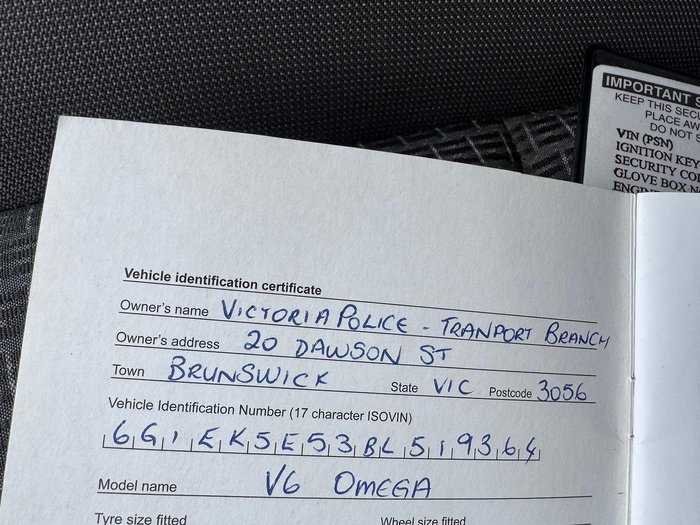 IMPORTANT S
KEEP THIS SECU
PLACE AW
DO NOT S
VIN (PSN)
IGNITION KEY
SECURITY COD
GLOVE BOX N
ENGIN
Vehicle identification certificate
Owner's name VICTORIA POLICE - TRANPORT BRANCH
Owner's address 20 DAWSON ST
Town BRUNSWICK State VIC Postcode 3056
Vehicle Identification Number (17 character ISOVIN)
6G1EK5E53BL519364
Model name V6 OMEGA
Tyre size fitted Wheel size fitted